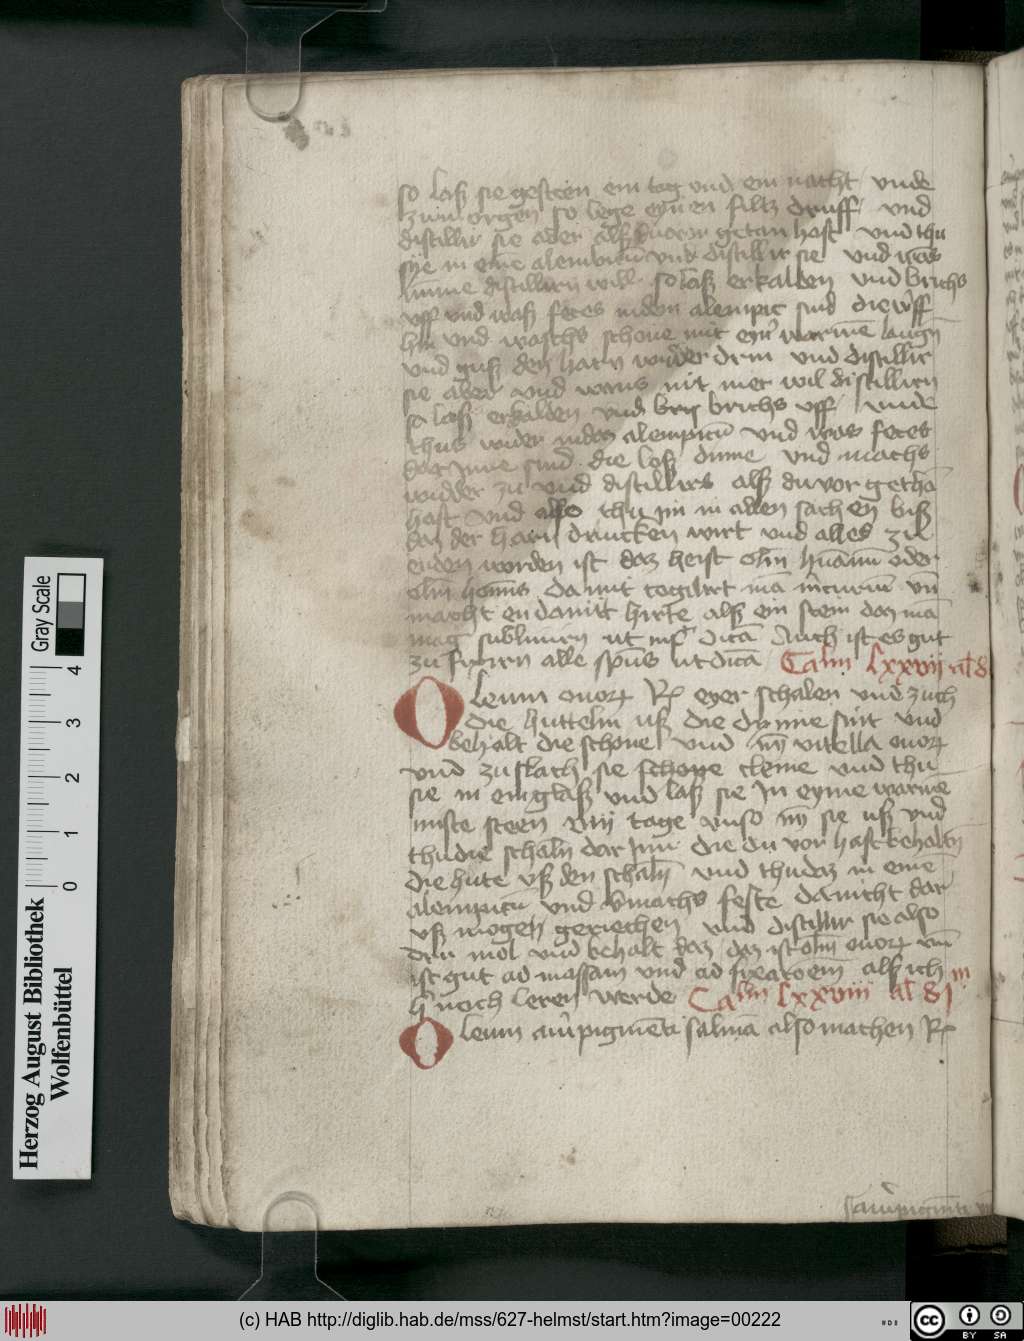 so laß sie gesteen ein tag und ein nacht vnde
zum orgen so lege eynen filtz druff vnd
distillir sie aber alß du vor getan hast vnd thu
sye in eine alembicum vnd distillir sie vnd wan
nime distillirn will so laß erkalden vnd brichs
vff vnd waß feces in den alempic sind die wff
hin vnd waschs schone mit eyner warme laugen
vnd guß den harn widder drin vnd distillir
sie aber vnd wans nit mer wil distillirn
so laß erkalden vnd brichs vff vnde
thus wider in den alempicū vnd was feces
dar Inne sind die loß dinne vnd machs
widder zu vnd distillirs alß du vor gethā
hast vnd also thu im in allen sachen biß
daz der harn druncken wirt vnd alles zu
enden worden ist daz heist olm hūanū oder
olm hois da mit cogilirt mā mcuriū vn
macht en damit hirte alß ein stein daz mā
mag sublimirn ut infra dicā Auch ist es gut
zu fixirn alle spūs ut dicā Calm lxxvij al 8
Oleum ouorum Rx eyer schalen vnd zuch
die huttelin uß die dynne sint vnd
behalt die schone vnd nym vitella ouorum
vnd zuslach sie schone cleine vnd thu
sie in ein glaß vnd laß sie In eyme warmē
miste steen viij tage vnso nym sie uß vnd
thu die schaln dar Inn die du vor hast behaltn
die hute vß den schaln vnd thu daz in eine
alempicū vnd vmachs feste da nicht dar
vß mogen geriechen vnd distillir sie also
dru mol vnd behalt daz daz ist olm ouorum vn
ist gut ad massam vnd ad fixacoem alß ich
hie noch leren werde Calm lxxviii al 81
Oleum auripigmēti salmā also machen Rx
auripigmēti
Gray Scale
4
3
2
1
0
Herzog August Bibliothek
Wolfenbüttel
(c) HAB http://diglib.hab.de/mss/627-helmst/start.htm?image=00222
cc BY SA